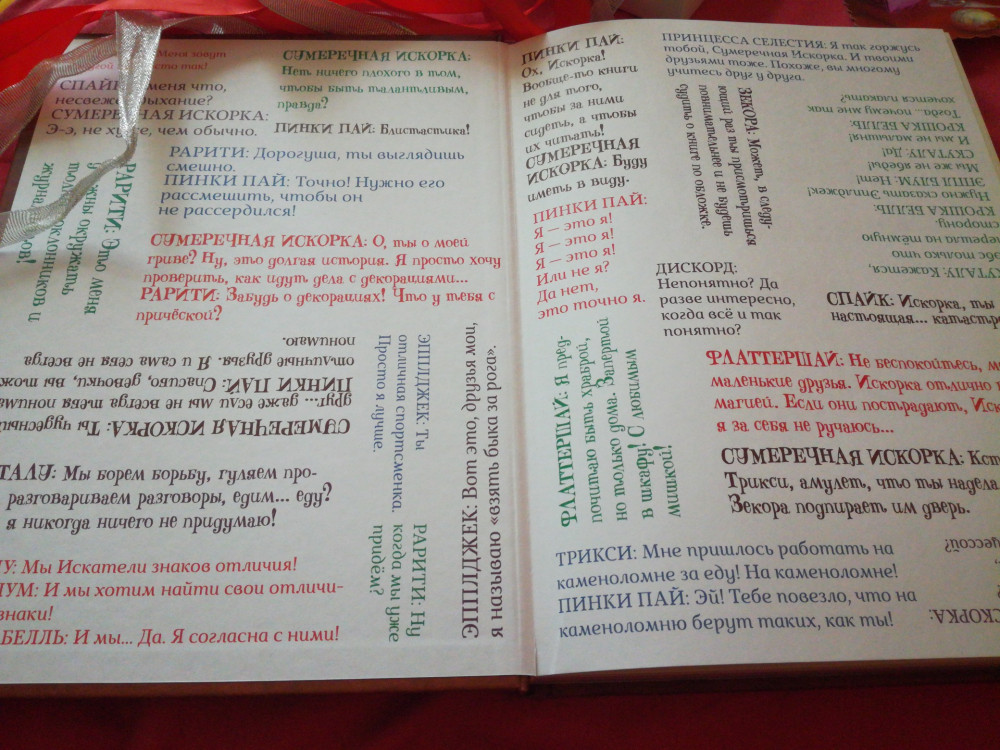 Меня зовут
просто так!
СПАЙК: меня что,
несвежее дыхание?
СУМЕРЕЧНАЯ ИСКОРКА:
Э-э, не хуже, чем обычно.
СУМЕРЕЧНАЯ ИСКОРКА:
Нет ничего плохого в том,
чтобы быть талантливым,
правда?
ПИНКИ ПАЙ: Блистастика!
РАРИТИ: Дорогуша, ты выглядишь
смешно.
ПИНКИ ПАЙ: Точно! Нужно его
рассмешить, чтобы он
не рассердился!
РАРИТИ: Это меня
должны окружать
толпы поклонников и
журналистов!
СУМЕРЕЧНАЯ ИСКОРКА: О, ты о моей
гриве? Ну, это долгая история. Я просто хочу
проверить, как идут дела с декорациями...
РАРИТИ: Забудь о декорациях! Что у тебя с
причёской?
СУМЕРЕЧНАЯ ИСКОРКА: Ты чудесный
друг... даже если мы не всегда тебя понима
ПИНКИ ПАЙ: Спасибо, девочки, вы тож
отличные друзья. Я и сама себя не всегда
понимаю.
ЭППЛДЖЕК: Ты
отличная спортсменка.
Просто я лучше.
РАРИТИ: Ну
когда мы уже
придём?
ЭППЛДЖЕК: Вот это, друзья мои,
я называю «взять быка за рога».
ТАЛУ: Мы борем борьбу, гуляем про-
разговариваем разговоры, едим... еду?
я никогда ничего не придумаю!
ЛУ: Мы Искатели знаков отличия!
ЛУМ: И мы хотим найти свои отличи-
знаки!
БЕЛЛЬ: И мы... Да. Я согласна с ними!
ПИНКИ ПАЙ:
Ох, Искорка!
Вообще-то книги
не для того,
чтобы за ними
сидеть, а чтобы
их читать!
СУМЕРЕЧНАЯ
ИСКОРКА: Буду
иметь в виду.
ПИНКИ ПАЙ:
Я — это я!
Я — это я!
Я — это я!
Или не я?
Да нет,
это точно я.
ПРИНЦЕССА СЕЛЕСТИЯ: Я так горжусь
тобой, Сумеречная Искорка. И твоими
друзьями тоже. Похоже, вы многому
учитесь друг у друга.
ЗЕКОРА: Может, в следу-
ющий раз ты присмотришься
повнимательнее и не будешь
судить о книге по обложке.
СКУТАЛУ: Кажется,
где только что
перешла на тёмную
сторону.
КРОШКА БЕЛЛЬ:
Нужно сказать Эпплджек!
ЭППЛ БЛУМ: Нет!
Мы же не ябеды!
СКУТАЛУ: Да!
И мы не малыши!
КРОШКА БЕЛЛЬ:
Тогда... почему мне так
хочется плакать?
ДИСКОРД:
Непонятно? Да
разве интересно,
когда всё и так
понятно?
СПАЙК: Искорка, ты
настоящая... катастро
ФЛАТТЕРШАЙ: Я пред-
почитаю быть храброй,
но только дома. Запертой
в шкафу! С любимым
мишкой!
ФЛАТТЕРШАЙ: Не беспокойтесь, м
маленькие друзья. Искорка отлично
магией. Если они пострадают, Иск
я за себя не ручаюсь...
СУМЕРЕЧНАЯ ИСКОРКА: Кст
Трикси, амулет, что ты надела
Зекора подпирает им дверь.
ТРИКСИ: Мне пришлось работать на
каменоломне за еду! На каменоломне!
ПИНКИ ПАЙ: Эй! Тебе повезло, что на
каменоломню берут таких, как ты!
цессой?
СКОРКА: